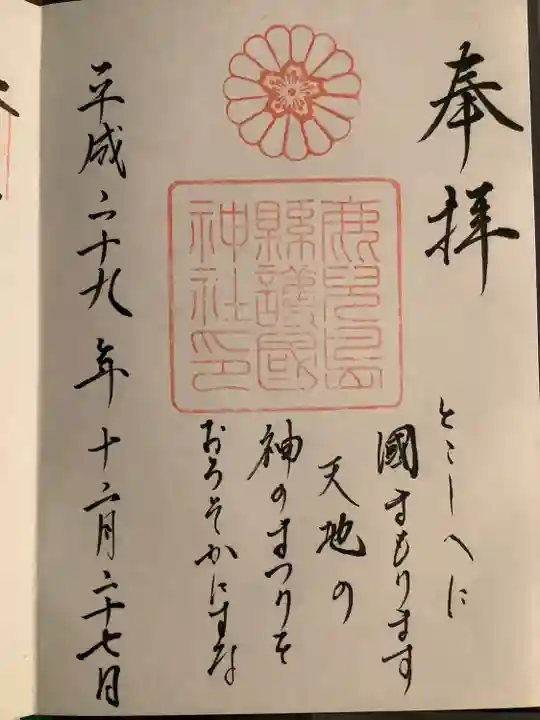 奉拝
鹿児島
縣護國
神社印
とこしへに
國まもります
天地の
神のまつりを
おろそかにすな
平成二十九年十二月二十七日